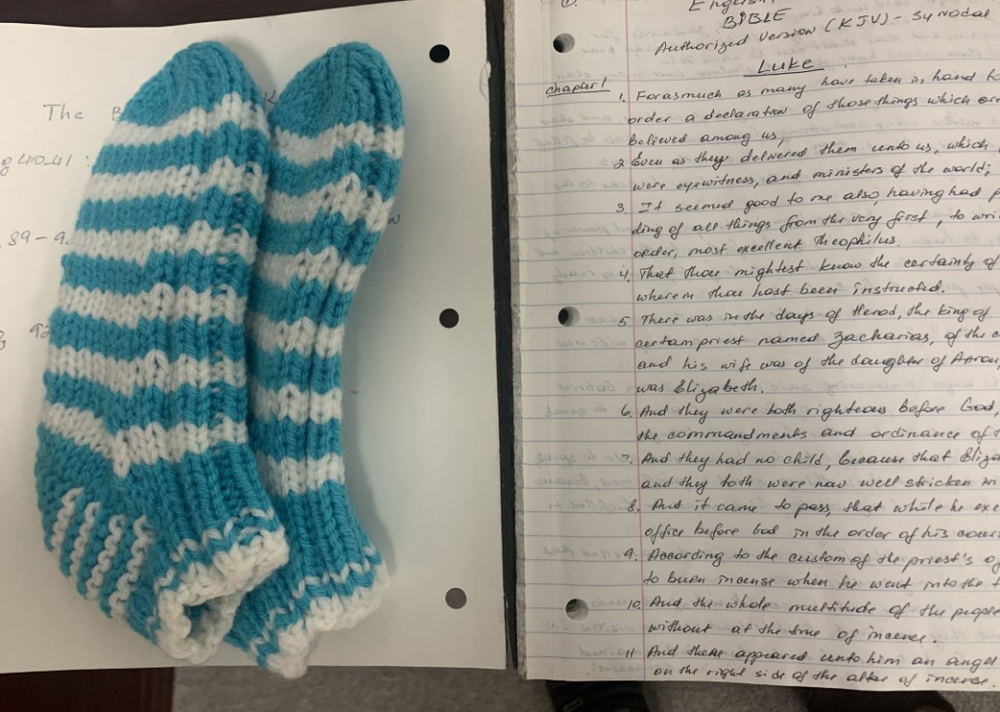 The B K
g 40-41 :
, 89 - 9
g 92
English
BIBLE
Authorized Version (KJV) - Synodal
Luke
Chapter 1
1. Forasmuch as many have taken in hand to
order a declaration of those things which are
believed among us,
2 Even as they delivered them unto us, which
were eyewitness, and ministers of the world;
3. It seemed good to me also, having had p
ding of all things from the very first, to wri
order, most excellent Theophilus.
4. That thou mightest know the certainty of
wherein thou hast been instructed.
5. There was in the days of Herod, the king of
certain priest named Zacharias, of the c
and his wife was of the daughter of Aaron,
was Elizabeth.
6. And they were both righteous before God,
the commandments and ordinance of t
7. And they had no child, because that Eliza
and they both were now well stricken in
8. And it came to pass, that while he exe
office before God in the order of his cours
9. According to the custom of the priest's of
to burn incense when he went into the t
10. And the whole multitude of the people
without at the time of incense.
11 And there appeared unto him an angel
on the right side of the altar of incense.